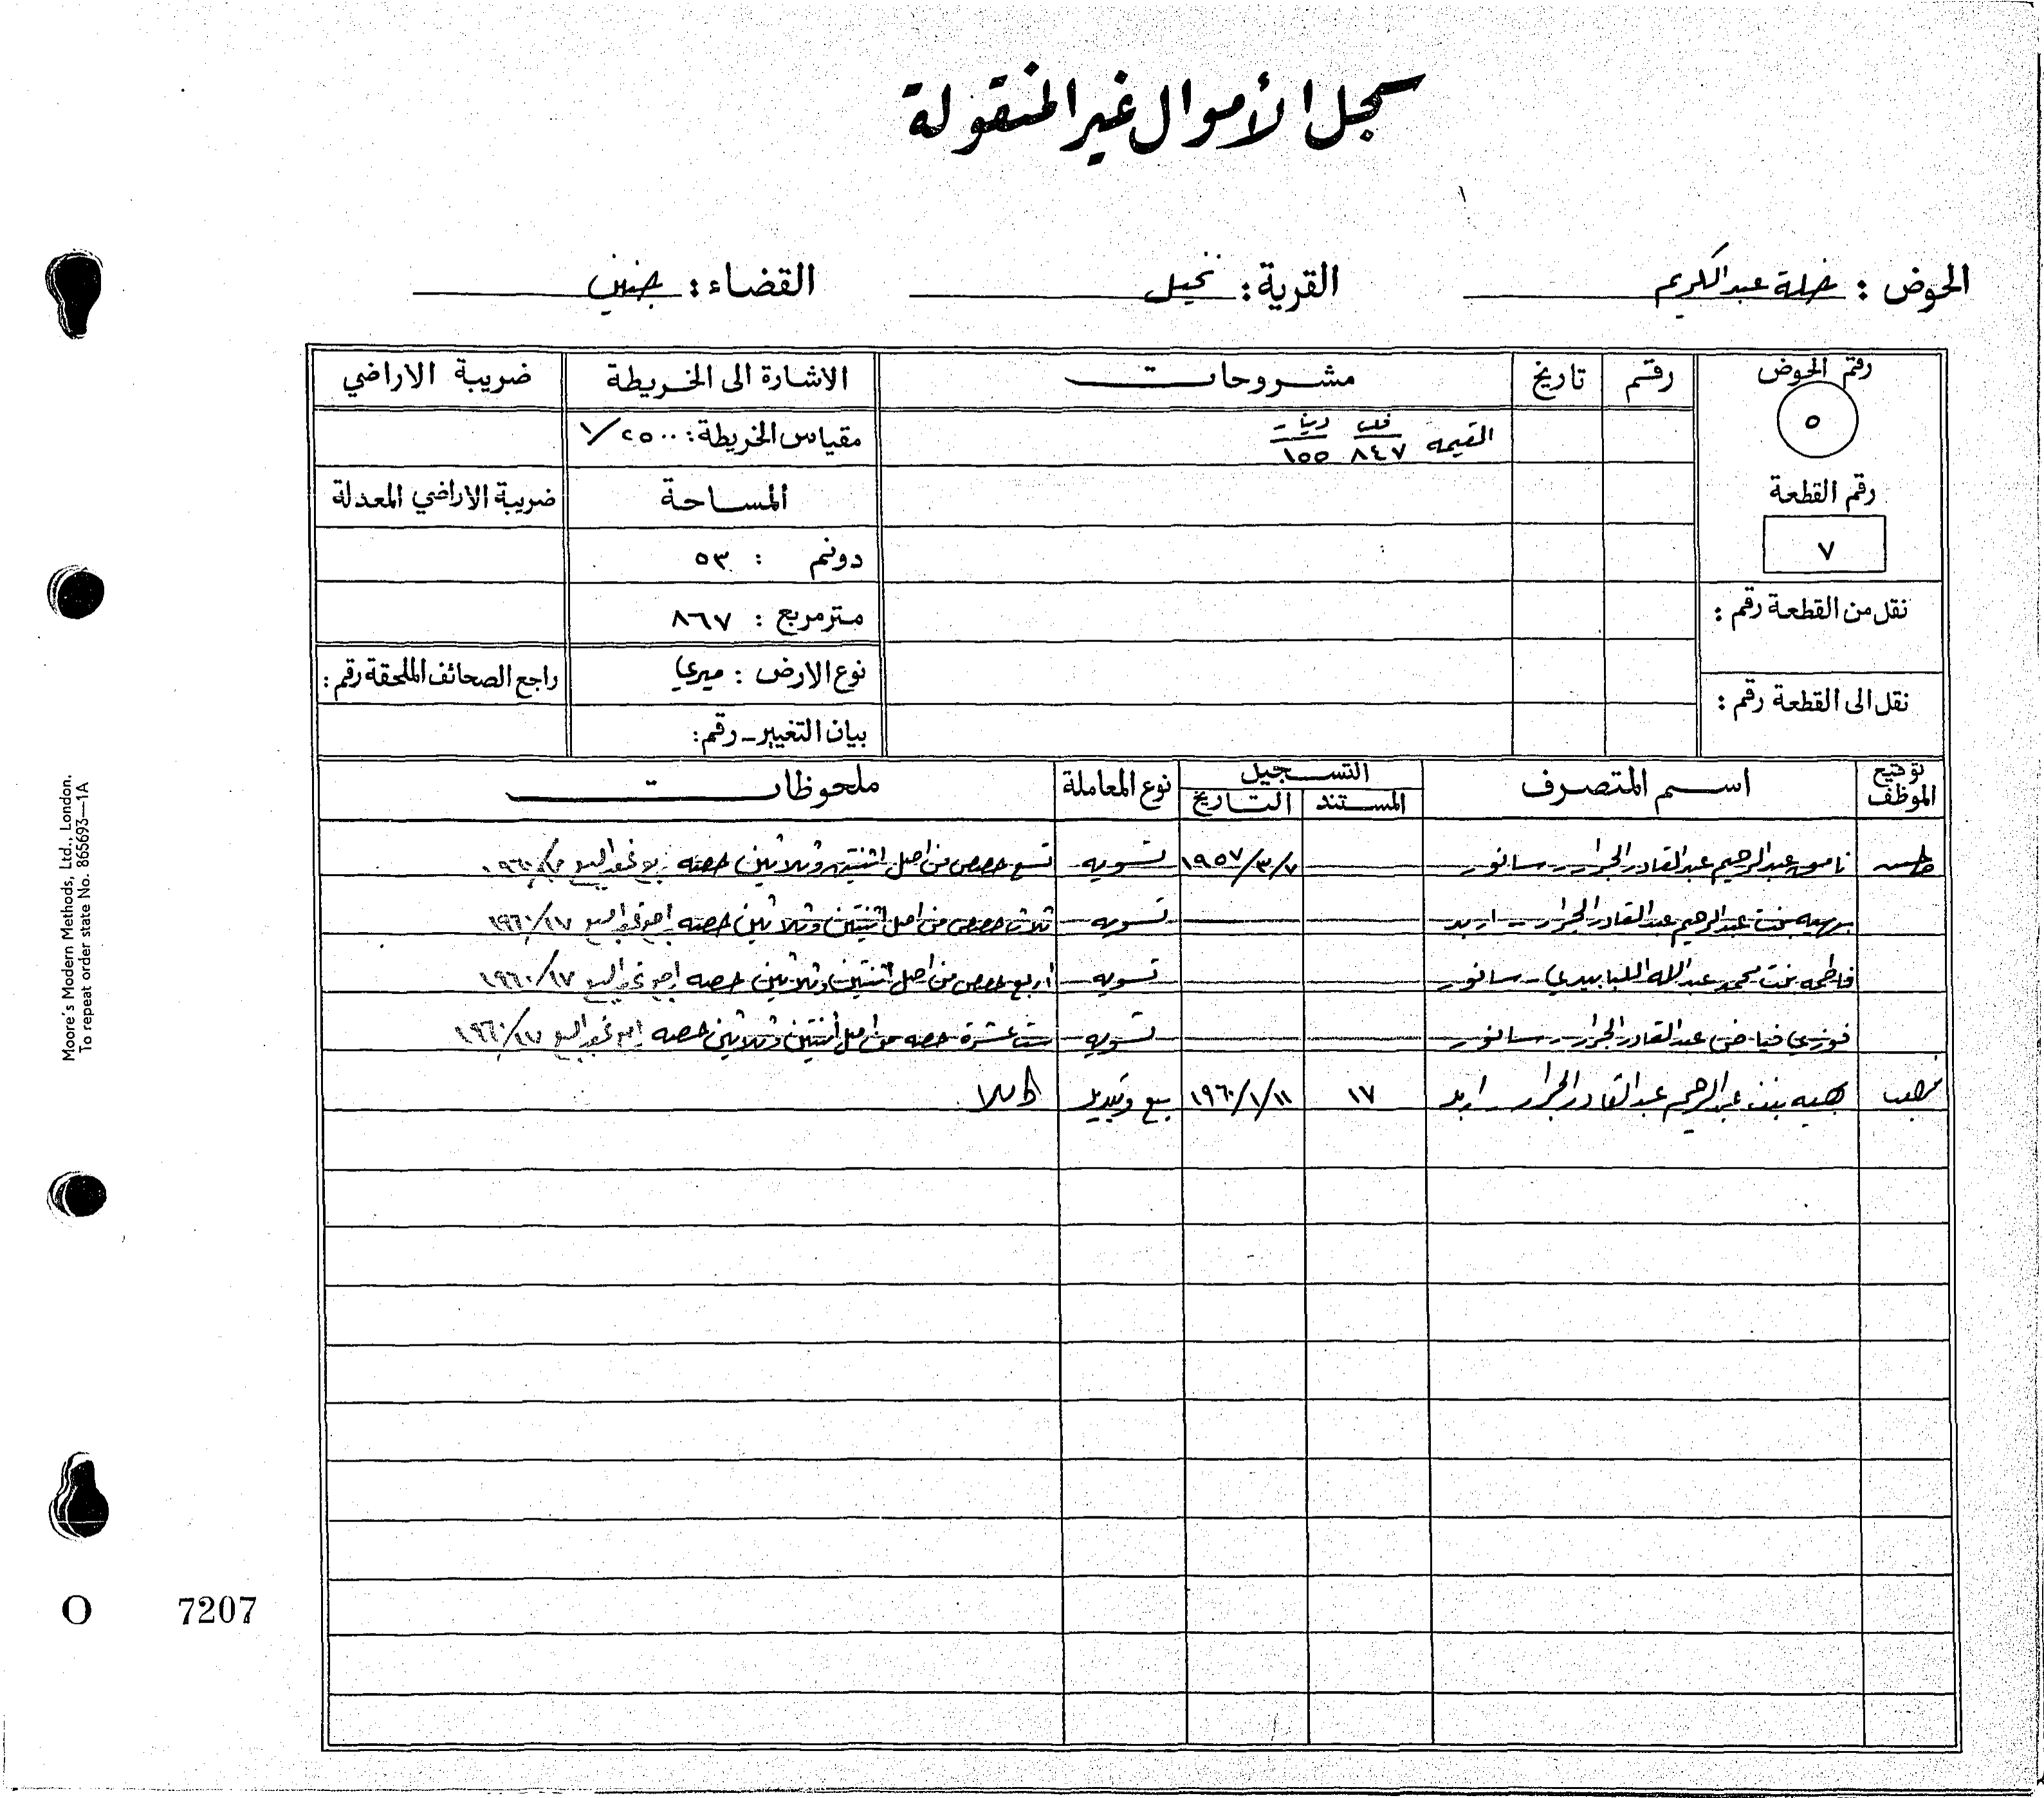 سجل الأموال غير المنقولة
الحوض : خلة عبدالكريم القرية : نخيل القضاء : جنين
رقم الحوض رقم تاريخ مشروحات الاشارة الى الخريطة ضريبة الاراضي
٥
القيمه فلس دينار
٨٤٧ ١٥٥
مقياس الخريطة : ١/٢٥٠٠
رقم القطعة
٧
المساحة ضريبة الاراضي المعدلة
دونم : ٥٣
نقل من القطعة رقم : متر مربع : ٨٦٧
نوع الارض : ميري راجع الصحائف الملحقة رقم :
نقل الى القطعة رقم : بيان التغيير - رقم :
توقيع الموظف اسم المتصرف التسجيل نوع المعاملة ملحوظات
المستند التاريخ
عبدالرحيم عبدالقادر الجرار - سانور ١٩٥٧/٣/٧ تسويه تسع حصص من اصل اثنتين وثلاثين حصه
بهيه بنت عبدالرحيم عبدالقادر الجرار - اربد تسويه ثلاث حصص من اصل اثنتين وثلاثين حصه ١٩٦٠/١٧
فاطمه بنت محمد عبدالله اللبابيدي - سانور تسويه اربع حصص من اصل اثنتين وثلاثين حصه ١٩٦٠/١٧
فوزي فياض عبدالقادر الجرار - سانور تسويه ست عشرة حصه من اصل اثنتين وثلاثين حصه ١٩٦٠/١٧
بهيه بنت عبدالرحيم عبدالقادر الجرار - اربد ١٧ ١٩٦٠/١/١١ بيع كاملا
Moore's Modern Methods, Ltd., London.
To repeat order state No. 865693—1A
O 7207